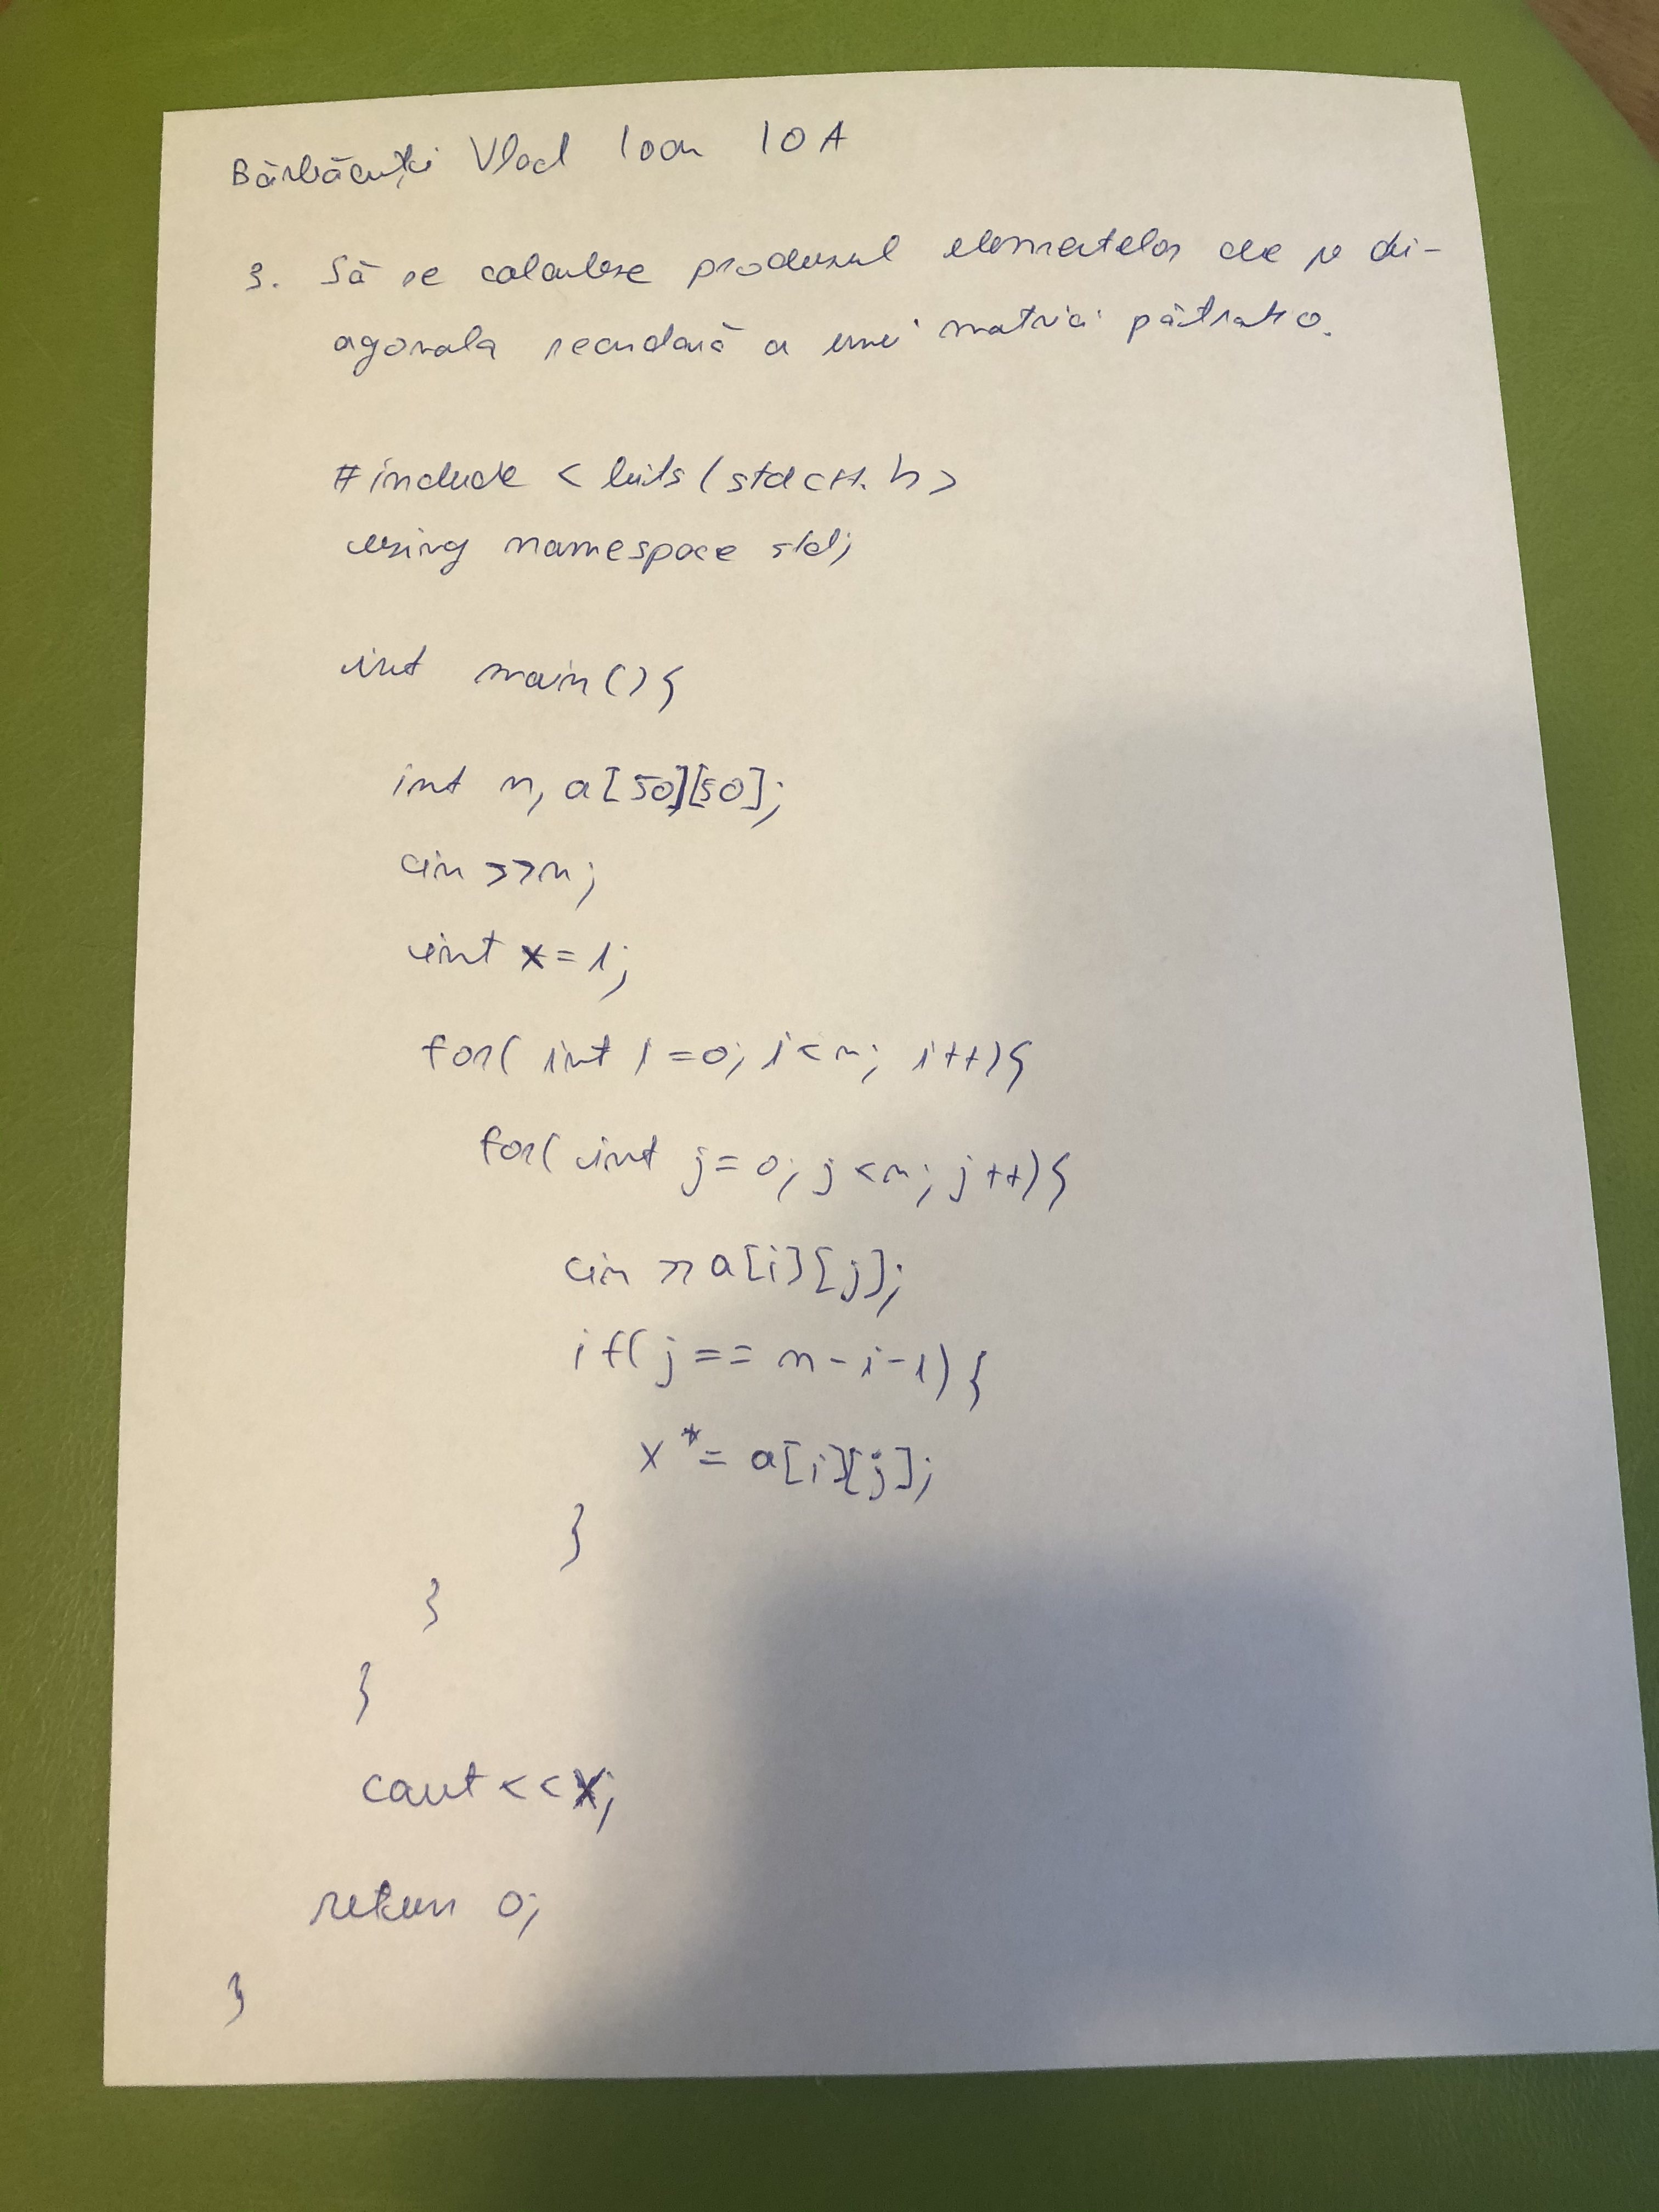 Bărbăcuți Vlad Ioan 10 A
3. Să se calculeze produsul elementelor de pe di-
agonala secundară a unei matrici pătratice.
#include < bits/stdc++.h >
using namespace std;
int main(){
int n, a[50][50];
cin >>n;
int x=1;
for( int i=0; i<n; i++){
for( int j=0; j<n; j++){
cin >>a[i][j];
if( j == n-i-1) {
x *= a[i][j];
}
}
}
cout <<x;
return 0;
}